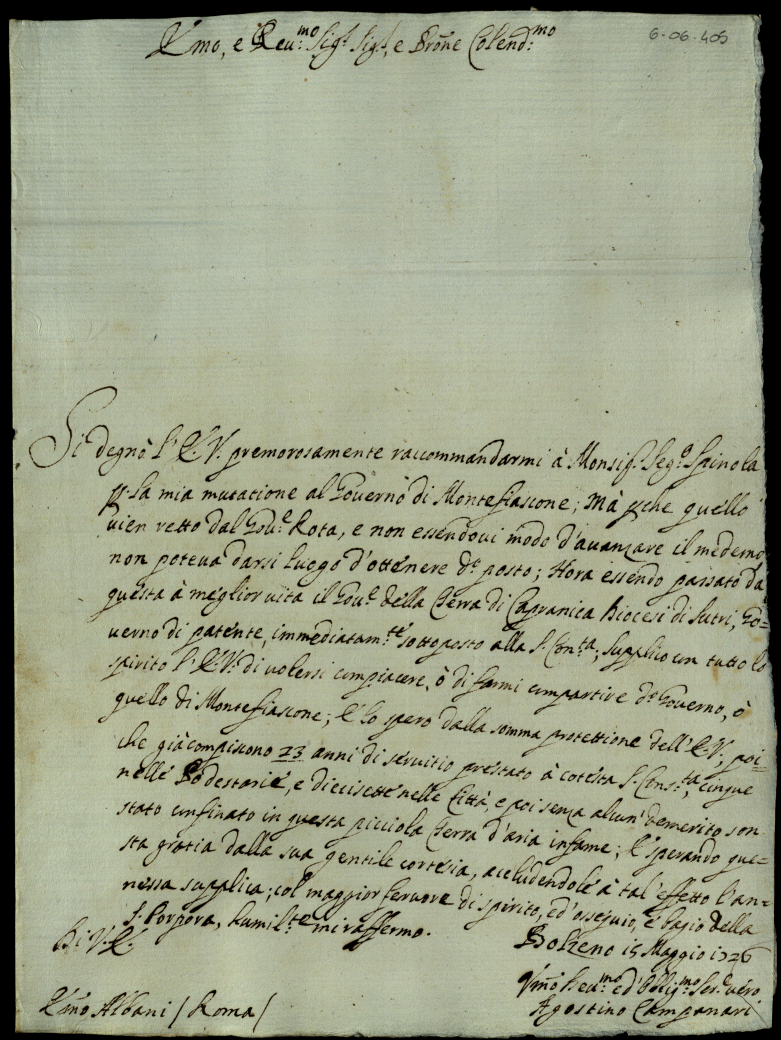 Emo, e Reu:mo Sigr. Sigr, e Prõne Colend:mo
6-06-405
Si degnò l'E.V. premorosamente raccommandarmi à Monsigr. Segr.o Spinola
p. la mia mutatione al Gouerno di Montefiascone; Mà p.che quello
uien retto dal Gou:e Rota, e non essendoui modo d'auanzare il medemo
non poteua darsi luogo d'ottenere d.o posto; Hora essendo passato da
questa à miglior uita il Gou:e della Terra di Capranica Diocesi di Sutri, Go=
uerno di patente, immediatam:te sottoposto alla S. Con:ta; supplico con tutto lo
spirito l'E.V. di uolersi compiacere, ò di farmi compartire d.o Gouerno, ò
quello di Montefiascone; E lo spero dalla somma protettione dell'E.V; poi=
che già compiscono 23 anni di seruitio prestato à cotesta S. Cons:ta, cinque
nelle Podestarie, e diecisette nelle Città, e poi senza alcun' demerito son
stato confinato in questa picciola Terra d'aria infame; E sperando que=
sta gratia dalla sua gentile cortesia, accludendole à tal' effetto l'an=
nessa supplica; col maggior feruore di spirito, ed' ossequio, è bagio della
S. Porpora, humil:te mi raffermo.
Di V.E.
Bolzeno 15 Maggio 1726
Vmo Deu:mo ed' Oblig:mo Ser:e uero
Agostino Campanari
Emo Albani / Roma /